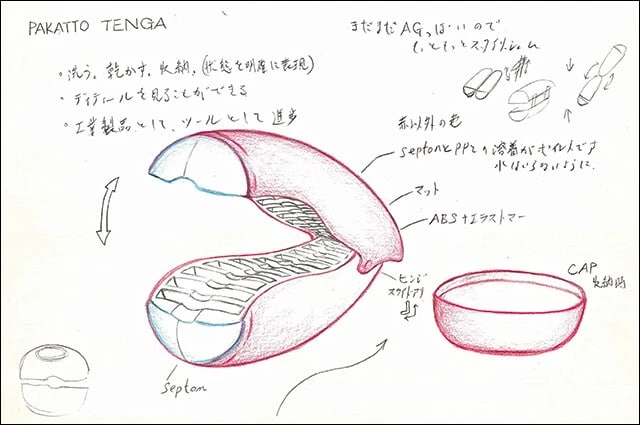 PAKATTO TENGA
まだまだAGっぽいので
もっともっとスタイリッシュ
・洗う、乾かす、収納、(状態を明確に表現)
・ディテールを見ることができる
・工業製品として、ツールとして進歩
赤以外の色
SeptonとPPとの溶着がポイントです
水はいらないように、
マット
ABS+エラストマー
ヒンジ
スライドアリ
CAP
収納時
Septon